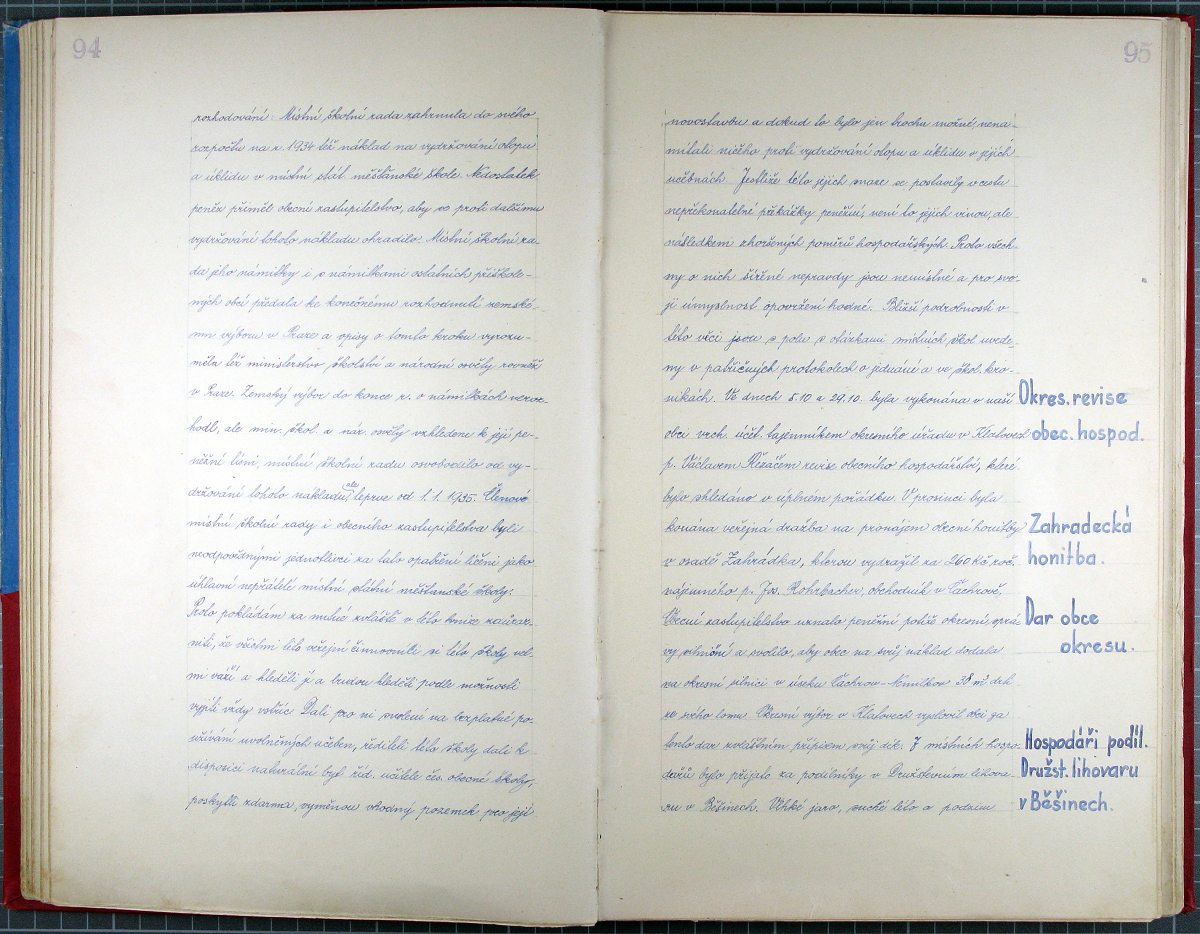 94
rozhodování. Místní školní rada zahrnula do svého
rozpočtu na r. 1934 též náklad na vydržování otopu
a úklidu v místní stát. měšťanské škole. Nedostatek
peněz přiměl obecní zastupitelstvo, aby se proti dalšímu
vydržování tohoto nákladu ohradilo. Místní školní ra-
da jeho námitky i s námitkami ostatních přiškole-
ných obcí předala ke konečnému rozhodnutí zemské-
mu výboru v Praze a opisy o tomto kroku vyrozu-
měla též ministerstvo školství a národní osvěty rovněž
v Praze. Zemský výbor do konce r. o námitkách neroz-
hodl, ale min. škol. a nár. osvěty vzhledem k její pe-
něžní tísni, místní školní radu osvobodilo od vy-
držování tohoto nákladu, ale teprve od 1.1. 1935. Členové
místní školní rady i obecního zastupitelstva byli
neodpovědnými jednotlivci za toto opatření líčeni jako
úhlavní nepřátelé místní státní měšťanské školy.
Proto pokládám za nutné zvláště v této knize zazname-
niti, že všichni tito veřejní činovníci si této školy vel-
mi váží a hleděli jí a budou hleděti podle možnosti
vyjíti vždy vstříc. Dali pro ni svolení na bezplatné po-
užívání uvolněných učeben, řediteli této školy dali k
disposici naturální byt říd. učitele čes. obecné školy,
poskytli zdarma výměnou vhodný pozemek pro její
95
novostavbu a dokud to bylo jen trochu možné, nena-
mítali ničeho proti vydržování otopu a úklidu v jejích
učebnách. Jestliže této jejich snaze se postavily v cestu
nepřekonatelné překážky peněžní, není to jejich vinou, ale
následkem zhoršených poměrů hospodářských. Proto všech-
ny o nich šíření nepravdy jsou nemístné a pro svo-
ji úmyslnost opovržení hodné. Bližší podrobnosti v
této věci jsou spolu s otázkami místních škol uvede-
ny v patřičných protokolech o jednání a ve škol. kro-
nikách. Ve dnech 5.10 a 29.10. byla vykonána v naší
Okres. revise
obci vrch. účet. tajemníkem okresního úřadu v Klatovech
obec. hospod.
p. Václavem Řezáčem revise obecního hospodářství, které
bylo shledáno v úplném pořádku. V prosinci byla
konána veřejná dražba na pronájem obecní honitby
Zahradecká
v osadě Zahrádka, kterou vydražil za 260 Kč roč.
honitba.
nájemného p. Jos. Rohrbacher, obchodník v Čachrově.
Obecní zastupitelstvo uznalo peněžní potíže okresní sprá-
Dar obce
vy silniční a svolilo, aby obec na svůj náklad dodala
okresu.
na okresní silnici v úseku Čachrov-Němilkov 38 m³ štěrku
ze svého lomu. Okresní výbor v Klatovech vyslovil obci za
tento dar zvláštním přípisem svůj dík. 7 místních hospo-
Hospodáři podíl.
dářů bylo přijato za podílníky v Družstevním lihova-
Družst. lihovaru
ru v Běšinech. Vlhké jaro, suché léto a podzim
v Běšinech.